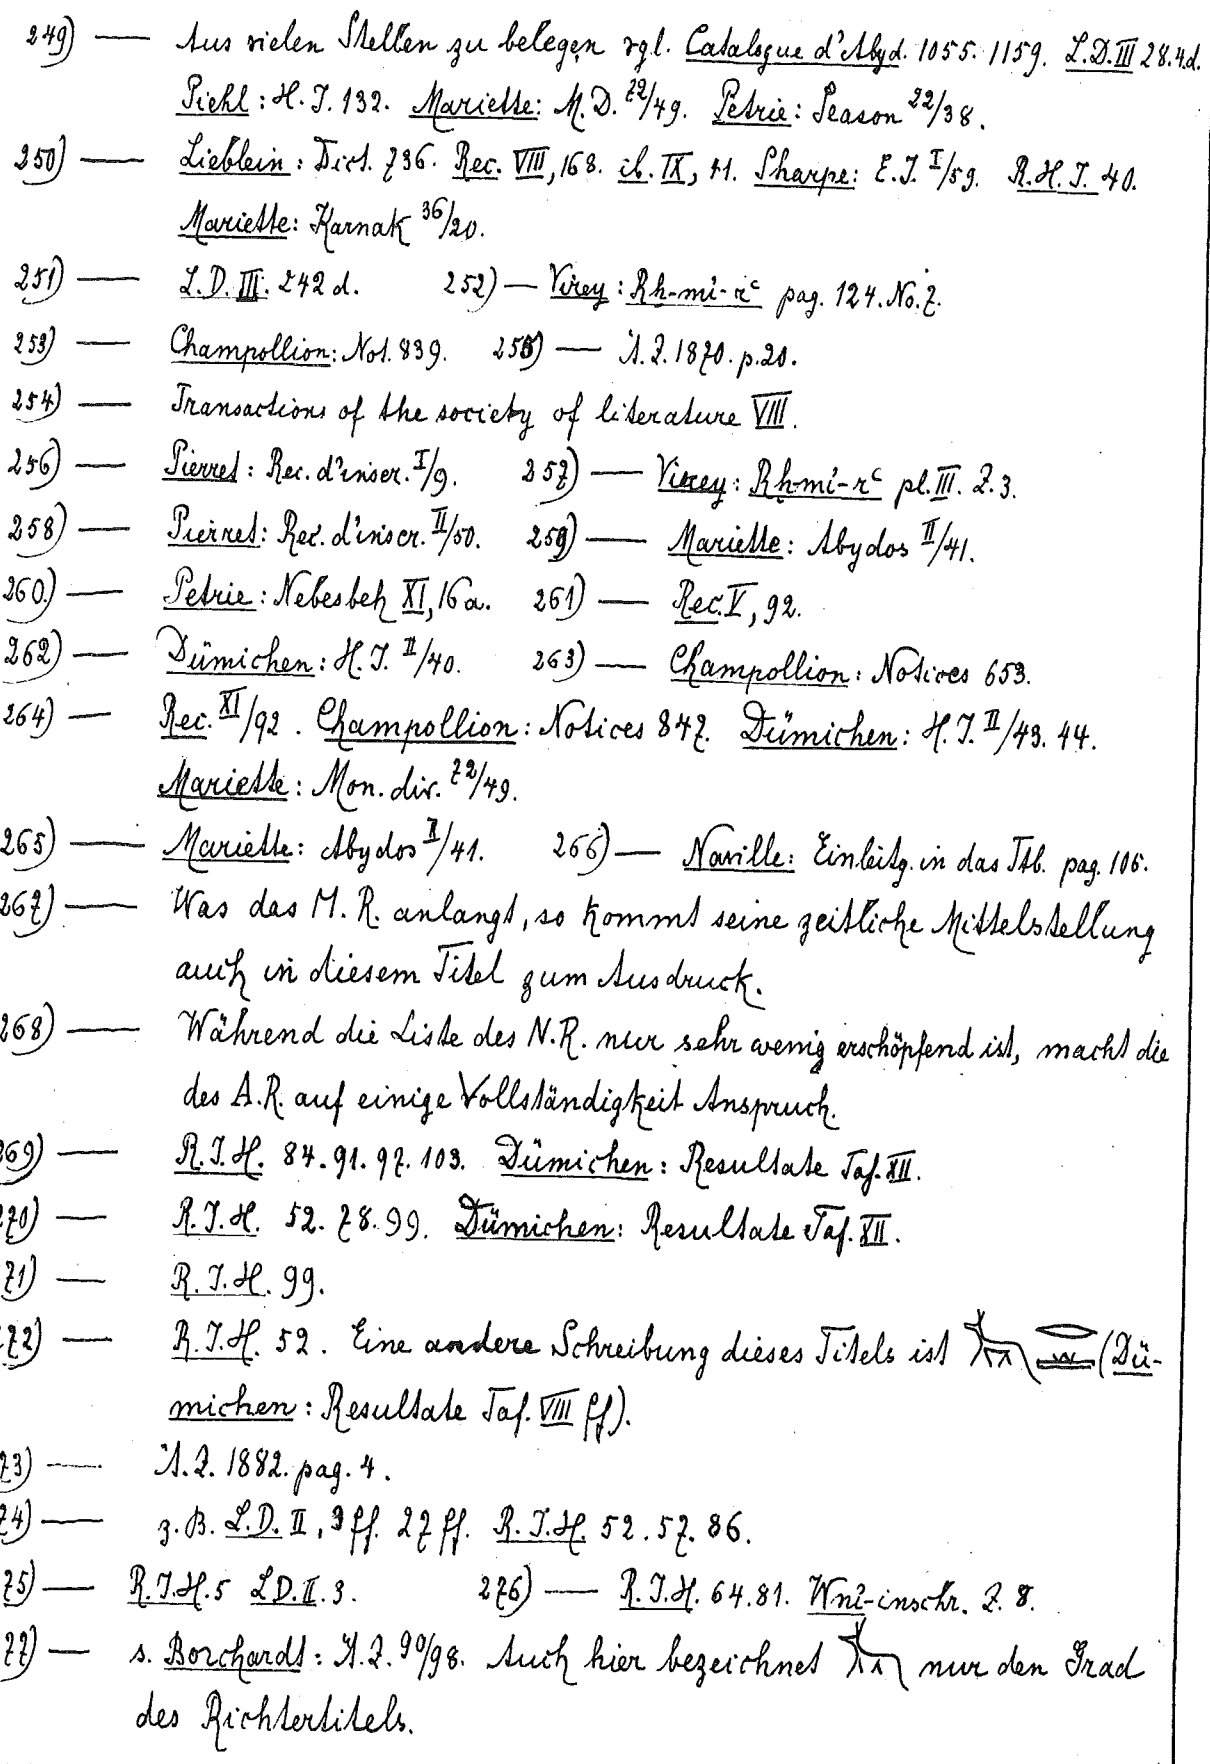 249) — Aus vielen Stellen zu belegen vgl. Catalogue d'Abyd. 1055. 1159. L.D. III 28.4.d.
Piehl: H.I. 132. Mariette: M.D. 72/49. Petrie: Season 22/38.
250) — Lieblein: Dict. 736. Rec. VIII, 168. ib. IX, 41. Sharpe: E.I. I/59. R.H.I. 40.
Mariette: Karnak 36/20.
251) — L.D. III. 242 d. 252) — Virey: Rh-mi-rc pag. 124. No. 7.
253) — Champollion: Not. 839. 255) — Ä.Z. 1870. p. 20.
254) — Transactions of the society of literature VIII.
256) — Pierret: Rec. d'inscr. I/9. 257) — Virey: Rh-mi-rc pl. III. Z. 3.
258) — Pierret: Rec. d'inscr. II/50. 259) — Mariette: Abydos II/41.
260) — Petrie: Nebesheh XI, 16a. 261) — Rec. V, 92.
262) — Dümichen: H.I. II/40. 263) — Champollion: Notices 653.
264) — Rec. XI/92. Champollion: Notices 847. Dümichen: H.I. II/43. 44.
Mariette: Mon. div. 72/49.
265) — Mariette: Abydos II/41. 266) — Naville: Einleitg. in das Ttb. pag. 106.
267) — Was das M.R. anlangt, so kommt seine zeitliche Mittelstellung
auch in diesem Titel zum Ausdruck.
268) — Während die Liste des N.R. nur sehr wenig erschöpfend ist, macht die
des A.R. auf einige Vollständigkeit Anspruch.
269) — R.I.H. 84. 91. 97. 103. Dümichen: Resultate Taf. XII.
270) — R.I.H. 52. 78. 99. Dümichen: Resultate Taf. XII.
71) — R.I.H. 99.
72) — R.I.H. 52. Eine andere Schreibung dieses Titels ist (Dü-
michen: Resultate Taf. VIII ff).
73) — Ä.Z. 1882. pag. 4.
74) — z.B. L.D. II, 3 ff. 27 ff. R.I.H. 52. 57. 86.
75) — R.I.H. 5 L.D. II. 3. 276) — R.I.H. 64. 81. Wni-inschr. Z. 8.
77) — s. Borchardt: Ä.Z. 90/98. Auch hier bezeichnet nur den Grad
des Richtertitels.